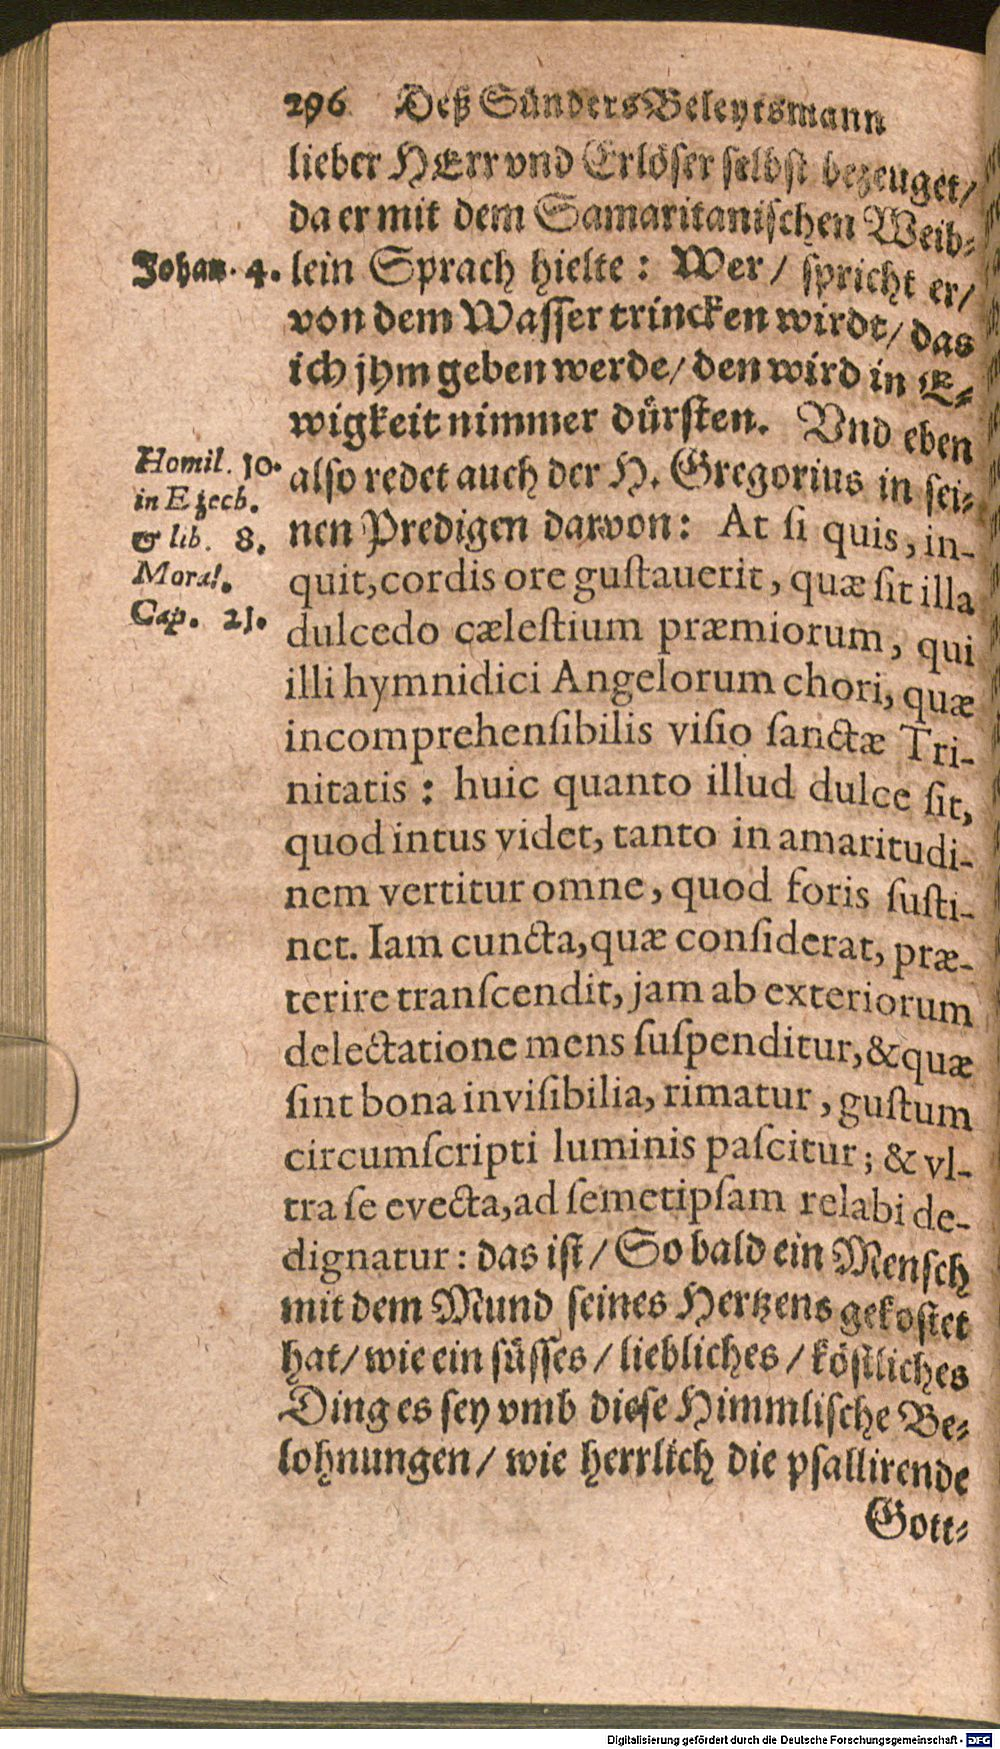 296 Deß Sünders Beleytsmann
lieber HErr vnd Erlöser selbst bezeuget/
da er mit dem Samaritanischen Weib-
Johan. 4.
lein Sprach hielte: Wer/ spricht er/
von dem Wasser trincken wirdt/ das
ich jhm geben werde/ den wird in E-
wigkeit nimmer dürsten. Vnd eben
Homil. 10.
in Ezech.
& lib. 8.
Moral.
Cap. 21.
also redet auch der H. Gregorius in sei-
nen Predigen darvon: At ſi quis, in-
quit, cordis ore guſtauerit, quæ ſit illa
dulcedo cæleſtium præmiorum, qui
illi hymnidici Angelorum chori, quæ
incomprehenſibilis viſio ſanctæ Tri-
nitatis: huic quanto illud dulce ſit,
quod intus videt, tanto in amaritudi-
nem vertitur omne, quod foris ſuſti-
net. Iam cuncta, quæ conſiderat, præ-
terire tranſcendit, jam ab exteriorum
delectatione mens ſuſpenditur, & quæ
ſint bona inviſibilia, rimatur, guſtum
circumſcripti luminis paſcitur; & vl-
tra ſe evecta, ad ſemetipſam relabi de-
dignatur: das ist/ So bald ein Mensch
mit dem Mund seines Hertzens gekostet
hat/ wie ein süsses/ liebliches/ köstliches
Ding es sey vmb diese Himmlische Be-
lohnungen/ wie herrlich die psallirende
Gott-
Digitalisierung gefördert durch die Deutsche Forschungsgemeinschaft - DFG